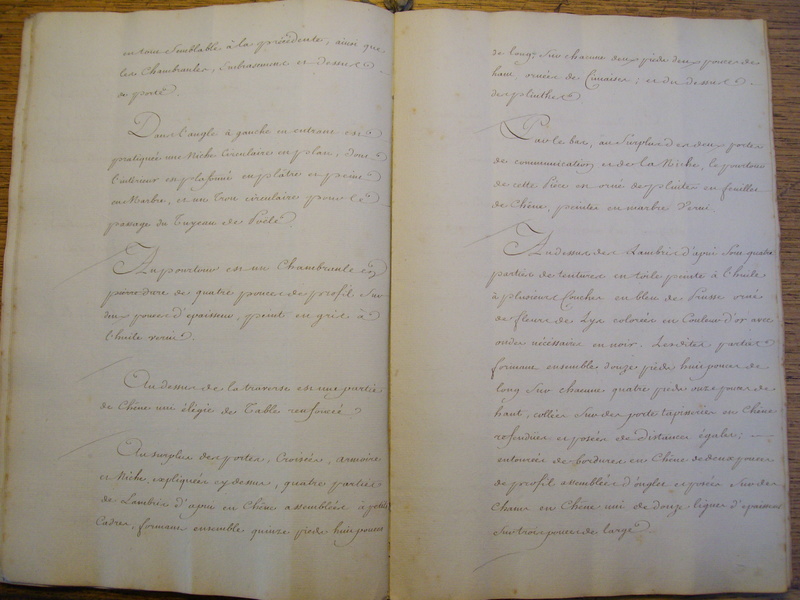 en tout semblable à la précédente, ainsi que
les Chambranles, Embrasemens et dessus
de porte.
Dans l'angle à gauche en entrant est
pratiquée une Niche Circulaire en plan, dont
l'intérieur en plafonné en plâtre et peint
en Marbre, et un Trou circulaire pour le
passage du Tuyeau de Poële
Au pourtour est un Chambranle en
pierre dure de quatre pouces de profil Sur
deux pouces d'epaisseur, peint en gris à
l'huile verni.
Au dessus de la traverse est une partie
de Chêne uni élégie de Table renfoncée
Au surplus des portes, Croisées, armoire
et Niche expliquées cy dessus, quatre parties
de Lambris d'apui en Chêne assemblées à petits
Cadres, formant ensemble quinze pieds huit pouces
de long, Sur chacune deux pieds deux pouces de
haut ornées de Cimaises; et au dessus
de plinthes
Par le bas, au Surplus des deux portes
de communication et de la Niche, le pourtour
de cette Pièce est orné de plintes en feuilles
de Chêne, peintes en marbre Verni.
Au dessus des Lambris d'apui Sont quatre
parties de tentures en toile peinte à l'huile
à plusieurs Couches en bleu de Prusse orné
de fleurs de Lys colorées en Couleur d'or avec
ondes nécessaires en noir. Lesdites parties
formant ensemble douze pieds huit pouces de
long Sur chacune quatre pieds onze pouces de
haut, collées Sur des porte tapisseries en Chêne
refendües et posées de distances égales;
entourées de bordures en Chêne de deux pouces
de profil assemblées d'onglet et posées Sur des
Champ en Chêne uni de douze lignes d'epaisseur
Sur trois pouces de large